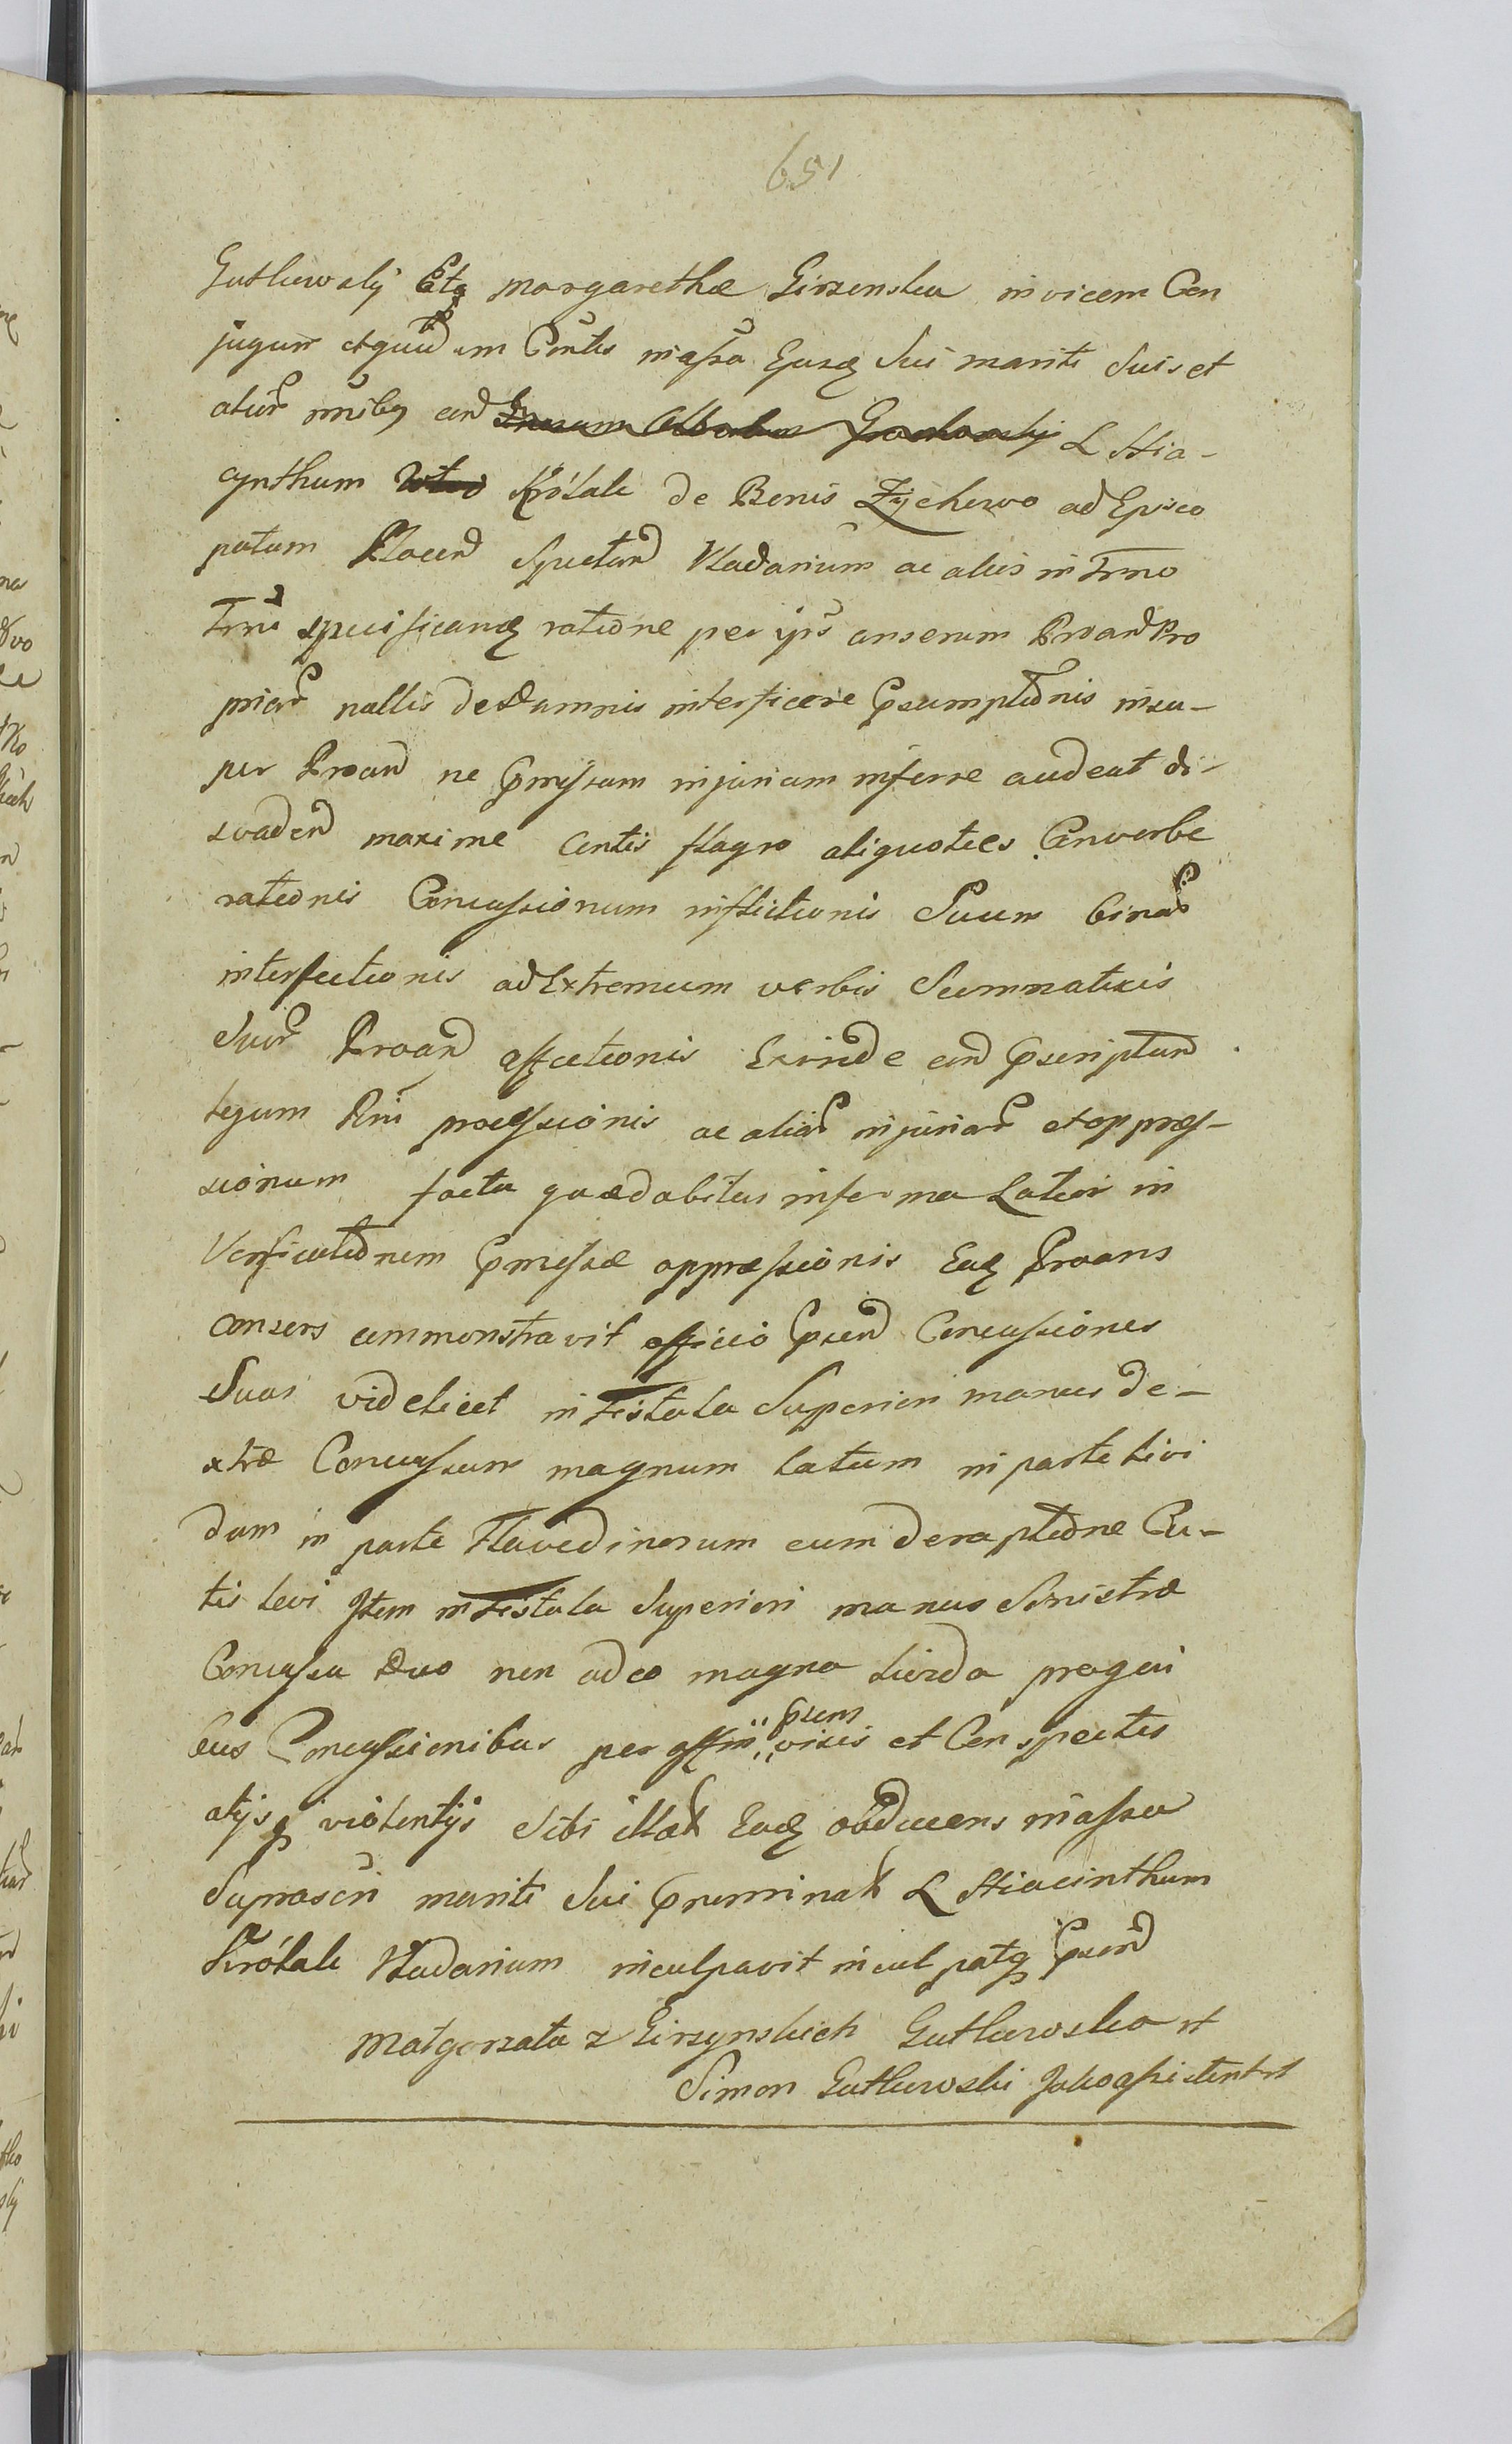 651
Gutkowskij Etq margarethæ Girzenska invicem Con
jugum etquid em Contis in assa Ejusq Sui mariti Suis et
alior nnibq erd L Hia-
cynthum Królak de Bonis Zychowo ad Episco
patum Plocen Spectan Wladarium ac aliis in Trmo
Trmi specificanq ratione per ips anserum Proan Pro
priar nullis de damnis interficere Psumptionis insu-
per Proan ne Pmissam injuriam inferre audeat di-
svaden maxime Contis flagro aliquoties Converbe
rationis Concussionum inflictionis Suum binar
interfectionis ad Extremum verbis Summaticis
Suor Proan affectionis Exinde erd Pscriptum
legum Rni processionis ac aliar injuriar et oppres-
sionum facta quædabitur inferma Lateri in
Verificationem Pmissæ oppressionis Eaq Proans
consers commonstravit officio Psend Concussiones
Suas videlicet in Fistula Superiori manus de-
xtræ Concussum magnum latum in parte livi
dum in parte Flavedinosum cum deraptione Cu-
tis levi Item in Fistula Superiori manus Sinistræ
Concussa duo non adeo magna livida pro quibus
bus Concussionibus per offm psens visis et Conspectis
alijsq violentijs Sibi illat Eadq obducens in assa
Suprascri mariti Sui Pnominat L Hiacinthum
Królak Wladarium inculpavit inculpatq Psend
Małgorzata z Girzynskich Gutkowska
Simon Gutkowski Jako assistent